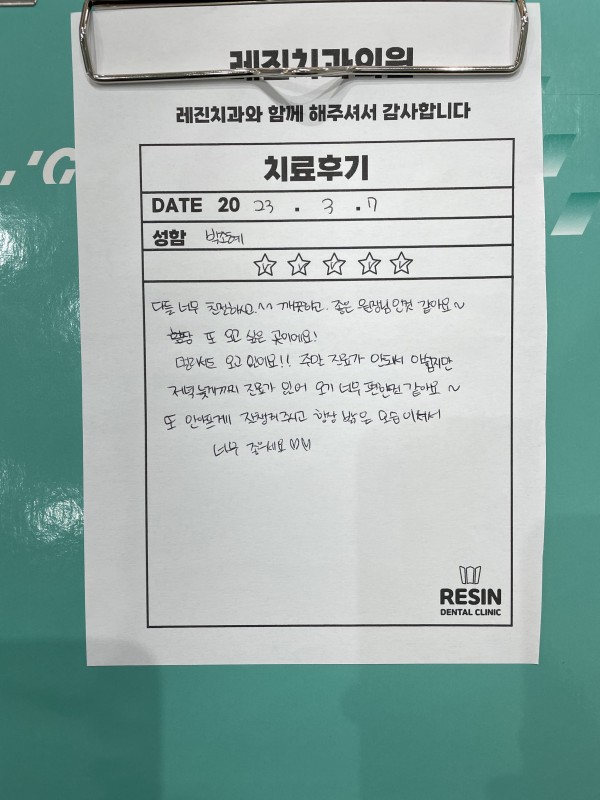 레진치과의원
레진치과와 함께 해주셔서 감사합니다
치료후기
DATE 20 23 . 3 . 7
성함 박소혜
다들 너무 친절하시고.^^ 깨끗하고. 좋은 원장님인것 같아요~
항상 또 오고 싶은 곳이에요!
멀리서도 오고 있어요!! 주말 진료가 안되서 아쉽지만
저녁 늦게까지 진료가 있어 오기 너무 편한것 같아요~
또 안아프게 잘해주시고 항상 밝은 모습이셔서
너무 좋으세요♡♡
RESIN
DENTAL CLINIC